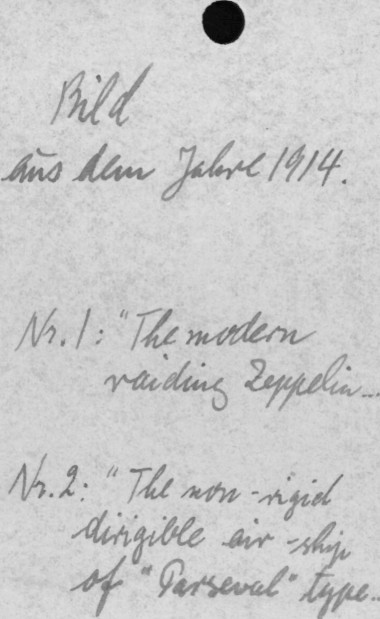 Bild
aus dem Jahre 1914.
Nr. 1: "The modern
raiding Zeppelin...
Nr. 2: "The non-rigid
dirigible air-ship
of "Parseval" type..